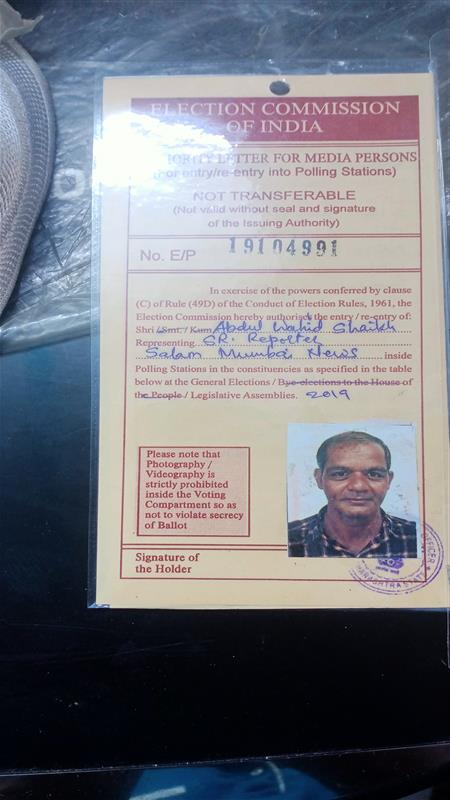 ELECTION COMMISSION
OF INDIA
LETTER FOR MEDIA PERSONS
(For entry/re-entry into Polling Stations)
NOT TRANSFERABLE
(Not valid without seal and signature
of the Issuing Authority)
No. E/P 19104991
In exercise of the powers conferred by clause
(C) of Rule (49D) of the Conduct of Election Rules, 1961, the
Election Commission hereby authorises the entry / re-entry of:
Shri / Smt. / Kum Abdul Wahid Shaikh
Representing SR. Reporter
Salam Mumbai News inside
Polling Stations in the constituencies as specified in the table
below at the General Elections / Bye-elections to the House of
the People / Legislative Assemblies. 2019
Please note that
Photography /
Videography is
strictly prohibited
inside the Voting
Compartment so as
not to violate secrecy
of Ballot
Signature of
the Holder